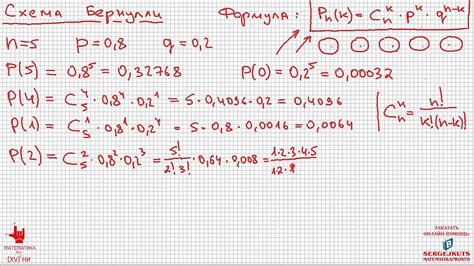 Схема Бернулли Формула: Pₙ(k) = Cₙᵏ · pᵏ · qⁿ⁻ᵏ
n=5 p=0,8 q=0,2
P(5) = 0,8⁵ = 0,32768 P(0) = 0,2⁵ = 0,00032
P(4) = C₅⁴ · 0,8⁴ · 0,2¹ = 5 · 0,4096 · 0,2 = 0,4096
P(1) = C₅¹ · 0,8¹ · 0,2⁴ = 5 · 0,8 · 0,0016 = 0,0064
Cₙᵏ = n! / k!(n-k)!
P(2) = C₅² · 0,8² · 0,2³ = 5! / 2! 3! · 0,64 · 0,008 = 1·2·3·4·5 / 1·2·
МАТЕМАТИКА
{ХУ}НИ
ЗАКАЗАТЬ
ОНЛАЙН-ПОМОЩЬ:
SERGEJKUTS
МАТЕМАТИКАПРОСТО